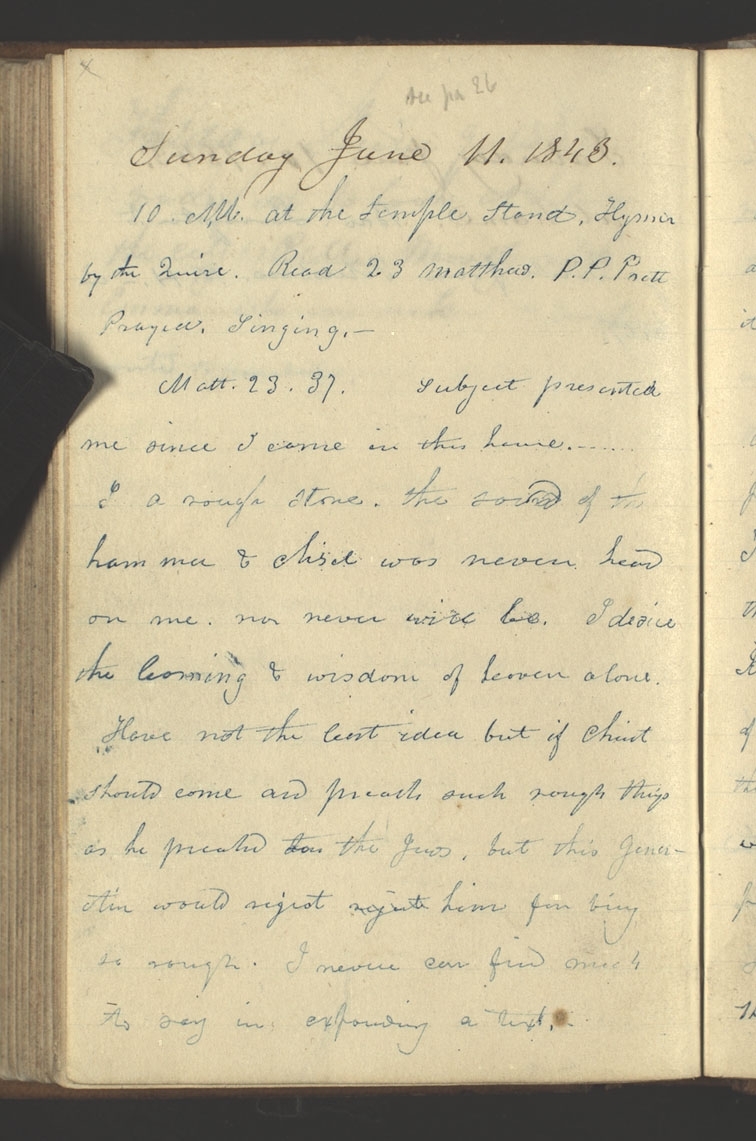 x
see pa 26
Sunday June 11. 1843.
10. A,M. at the temple Stand, Hymn
by the Quire. Read 23 matthew. P. P. Pratt
Prayed. Singing.—
Matt. 23. 37. subject presented
me since I came in this house.......
I a rough stone. the sound of the
hammer & chisel was never heard
on me. nor never will be. I desire
the learning & wisdom of heaven alone.
Have not the least idea but if Christ
should come and preach such rough things
as he preached to the Jews, but this Gener-
ation would reject him for being
so rough. I never can find much
to say in expounding a text.